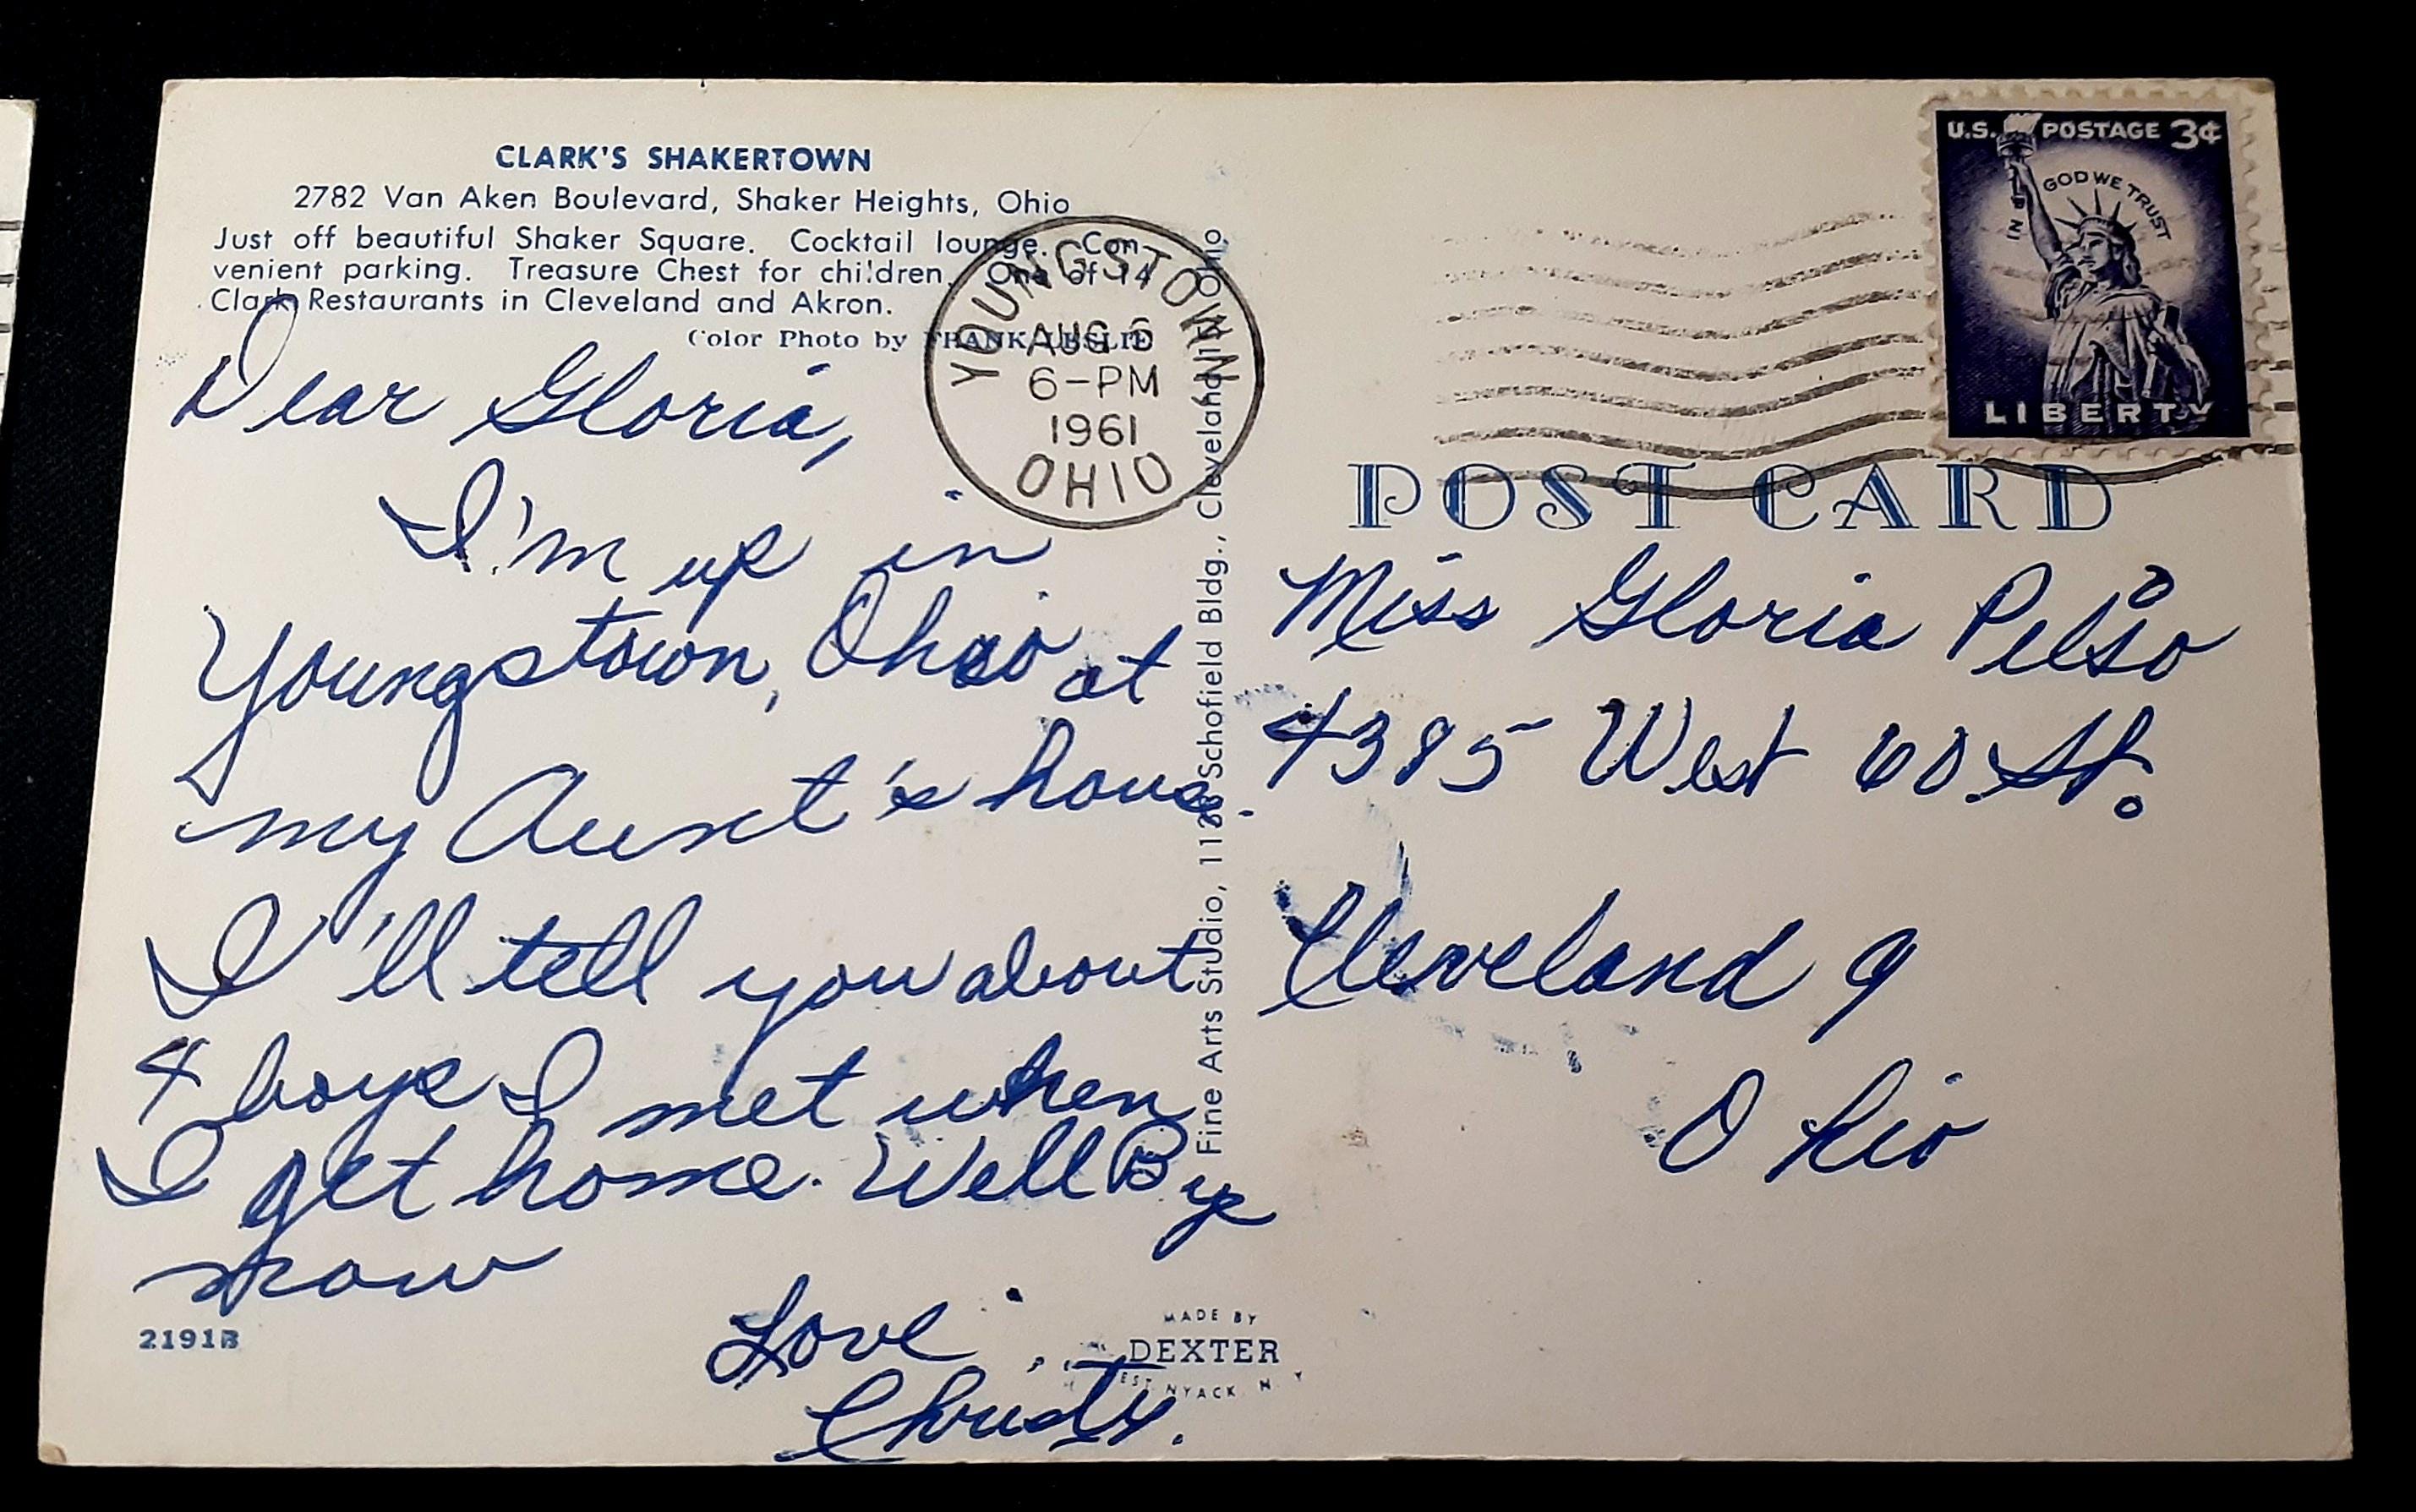 CLARK'S SHAKERTOWN
2782 Van Aken Boulevard, Shaker Heights, Ohio
Just off beautiful Shaker Square. Cocktail lounge. Con-
venient parking. Treasure Chest for children. One of 14
Clark Restaurants in Cleveland and Akron.
Color Photo by FRANK LESLIE
YOUNGSTOWN
AUG 6
6-PM
1961
OHIO
Dear Gloria,
I'm up in
Youngstown, Ohio at
my Aunt's house.
I'll tell you about
4 boys I met when
I get home. Well Bye
now
Love,
Christy.
2191B
MADE BY
DEXTER
WEST NYACK, N. Y.
Fine Arts Studio, Schofield Bldg., Cleveland, Ohio
U.S. POSTAGE 3¢
IN GOD WE TRUST
LIBERTY
POST CARD
Miss Gloria Pelso
4385 West 60 St.
Cleveland 9
Ohio